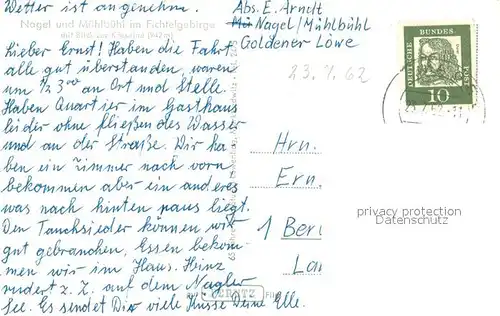 Wetter ist angenehm.
Abs. E. Arndt
Nagel/Mühlbühl
Goldener Löwe
Nagel und Mühlbühl im Fichtelgebirge
23.7.62
DEUTSCHE BUNDES POST
10
Lieber Ernst! Haben die Fahrt
alle gut überstanden, waren
um ½ 3⁰⁰ an Ort und Stelle.
Haben Quartier im Gasthaus
leider ohne fließendes Wasser
und an der Straße. Wir ha
ben ein Zimmer nach vorn
bekommen aber ein anderes
was nach hinten raus liegt.
Den Tauchsieder können wir
gut gebrauchen, Essen bekom-
men wir im Haus. Heinz
rudert z. Z. auf dem Nagler
See. Es sendet Dir viele Küsse Deine Elle.
Hrn.
Ern.
1 Berl
privacy protection
Datenschutz